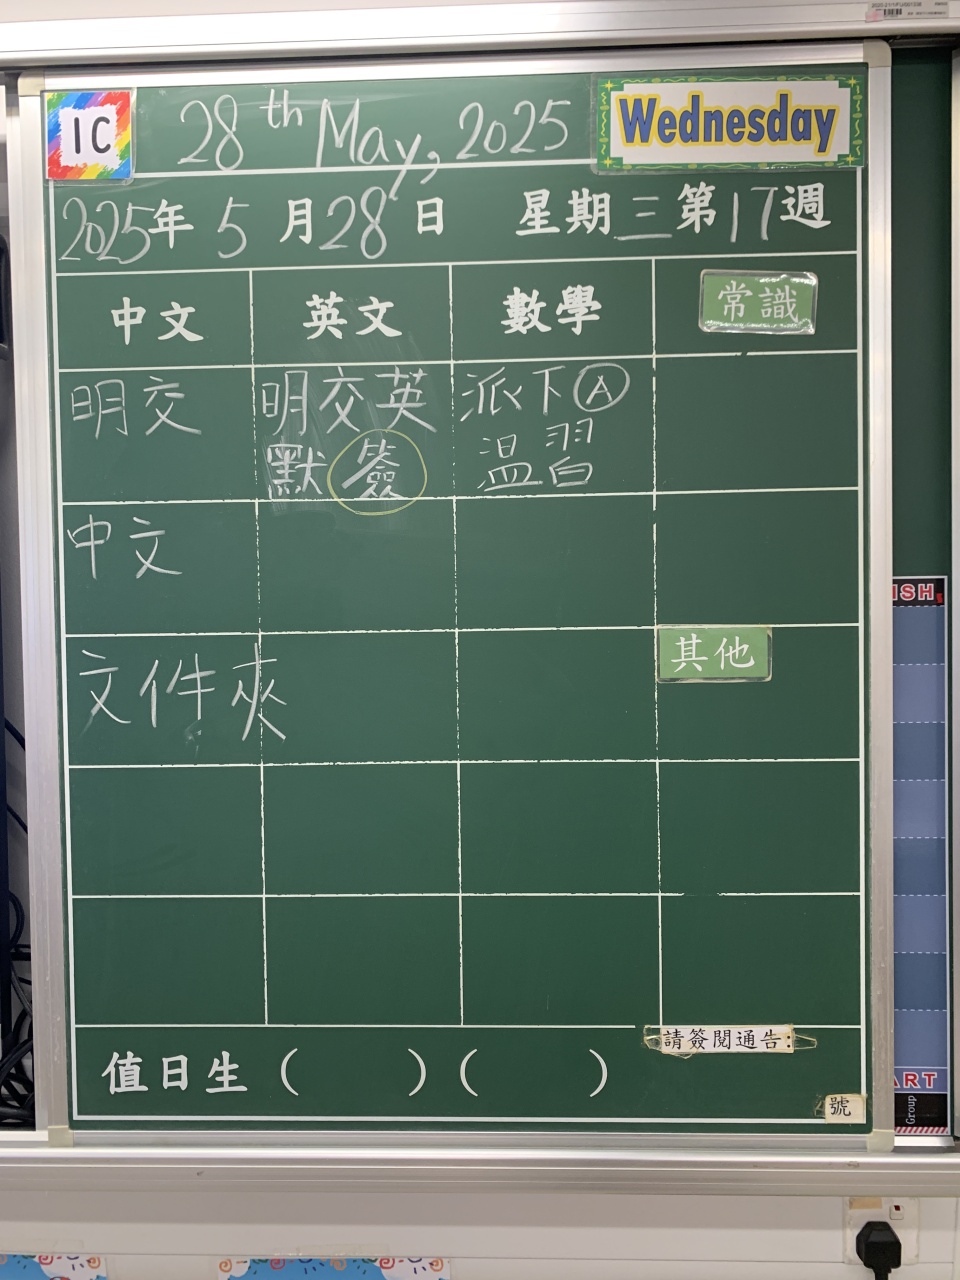 1C
28th May, 2025
Wednesday
2025年5月28日 星期三第17週
中文 英文 數學 常識
明交 明交英 派下Ⓐ
默簽 溫習
中文
文件夾
其他
請簽閱通告:
值日生 ( ) ( )
號
ISH,
ART
Group